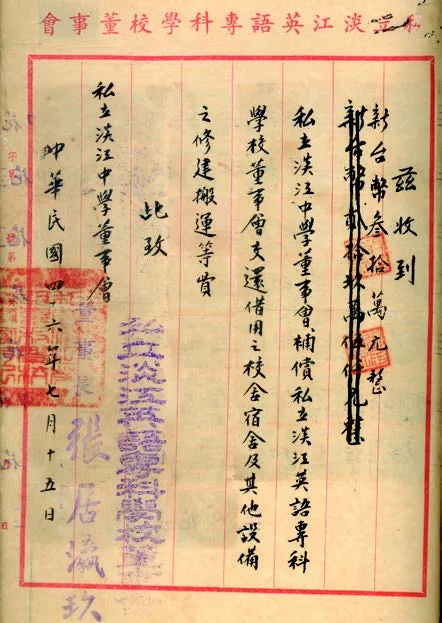 私立淡江英語專科學校董事會
茲收到
新台幣叁拾萬元整
新台幣貳拾玖萬伍仟元整
私立淡江中學董事會補償私立淡江英語專科
學校董事會交還借用之校舍宿舍及其他設備
之修建搬運等費
此致
私立淡江中學董事會
私立淡江英語專科學校董
董事長 張居瀛玖
中華民國四六年七月十五日